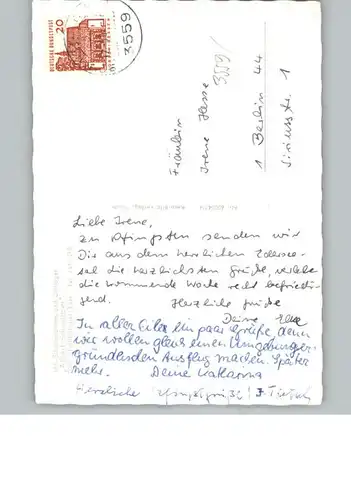 DEUTSCHE BUNDESPOST
20
3559
3559/
Fräulein
Irene Hesse
1 Berlin 44
1
Liebe Irene,
zu Pfingsten senden wir
Dir aus dem herrlichen Edersee-
tal die herzlichsten Grüße, verlebe
die kommende Woche recht befriedi-
gend. Herzliche Grüße
Deine
In aller Eile ein paar Grüße, denn
wir wollen gleich einen Umgebungser-
gründenden Ausflug machen. Später
mehr. Deine Katharina
Herzliche